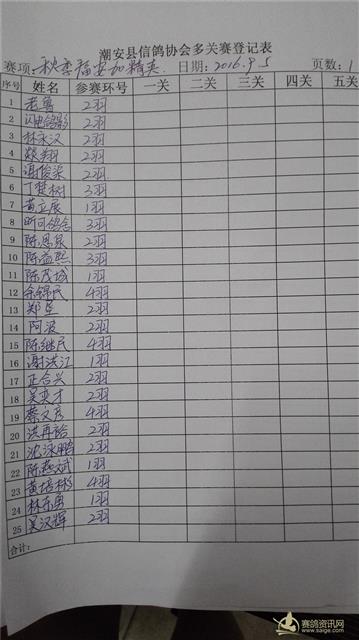 潮安县信鸽协会多关赛登记表
赛项: 秋季福安加精英 日期: 2016.9.5 页数: 1
序号 姓名 参赛环号 一关 二关 三关 四关 五关
1 老鲁 2羽
2 闪电鸽影 2羽
3 林永汉 2羽
4 燚翔 2羽
5 谢俊荣 2羽
6 丁楚树 3羽
7 黄立展 1羽
8 昕可鸽舍 3羽
9 陈恩泉 2羽
10 陈益熙 3羽
11 陈茂城 1羽
12 余锦民 4羽
13 郑坚 2羽
14 阿波 2羽
15 陈继民 4羽
16 谢洪江 1羽
17 正合兴 2羽
18 吴奕才 2羽
19 蔡文彦 4羽
20 洪再裕 2羽
21 沈泳鹏 2羽
22 陈燕斌 1羽
23 黄培彬 4羽
24 林东勇 1羽
25 吴汉辉 2羽
合计:
赛鸽资讯网
www.saige.com